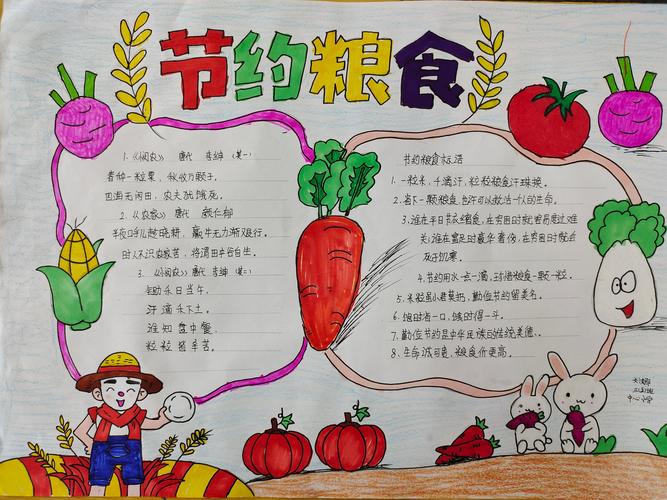 节约粮食
1.《悯农》 唐代 李绅(其一)
春种一粒粟,秋收万颗子。
四海无闲田,农夫犹饿死。
2.《农家》 唐代 颜仁郁
半夜呼儿趁晓耕,羸牛无力渐艰行。
时人不识农家苦,将谓田中谷自生。
3.《悯农》唐代 李绅(其二)
锄禾日当午,
汗滴禾下土。
谁知盘中餐,
粒粒皆辛苦。
节约粮食标语
1.一粒米,千滴汗,粒粒粮食汗珠换。
2.省下一颗粮食,也许可以救活一个人的生命。
3.谁在平日节衣缩食,在穷困时就容易度过难
关;谁在富足时豪华奢侈,在穷困时就会
死于饥寒。
4.节约用水一点一滴,珍惜粮食一颗一粒。
5.米粒虽小君莫扔,勤俭节约留美名。
6.饱时省一口,饿时得一斗。
7.勤俭节约是中华民族的传统美德。
8.生命诚可贵,粮食价更高。
中心小学